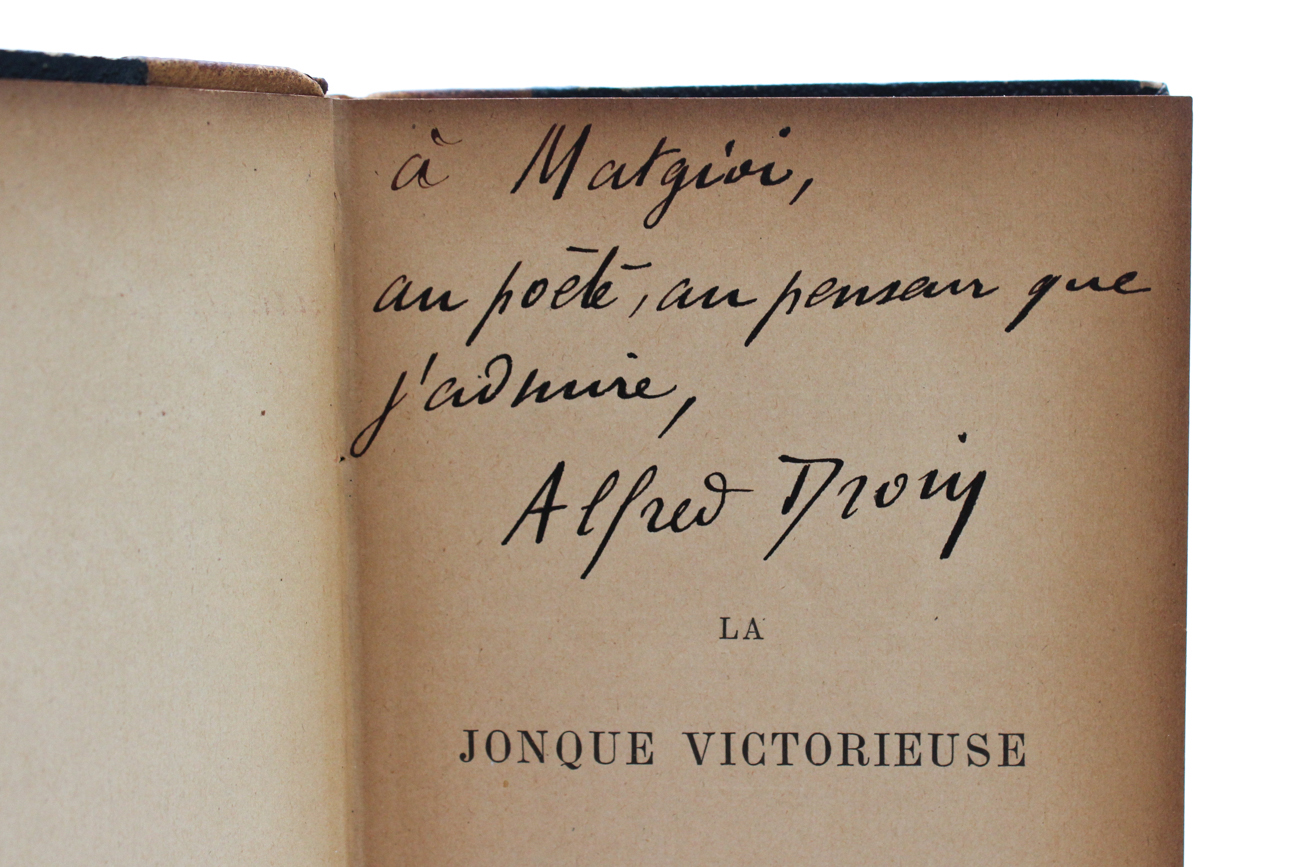 à Matgioi,
au poète, au penseur que
j'admire,
Alfred Droin
LA
JONQUE VICTORIEUSE